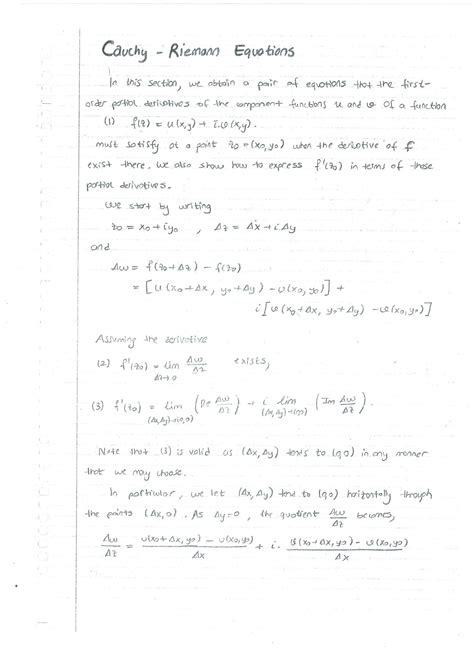 Cauchy - Riemann Equations
In this section, we obtain a pair of equations that the first-
order partial derivatives of the component functions u and v of a function
(1) f(z) = u(x,y) + i.v(x,y).
must satisfy at a point z₀ = (x₀,y₀) when the derivative of f
exist there. We also show how to express f'(z₀) in terms of those
partial derivatives.
We start by writing
z₀ = x₀ + iy₀ , Δz = Δx + iΔy
and
Δw = f(z₀+Δz) - f(z₀)
= [u(x₀+Δx, y₀+Δy) - u(x₀,y₀)] +
i[v(x₀+Δx, y₀+Δy) - v(x₀,y₀)]
Assuming the derivative
(2) f'(z₀) = lim Δz→0 Δw/Δz exists,
(3) f'(z₀) = lim (Δx,Δy)→(0,0) (Re Δw/Δz) + i lim (Δx,Δy)→(0,0) (Im Δw/Δz).
Note that (3) is valid as (Δx,Δy) tends to (0,0) in any manner
that we may choose.
In particular, we let (Δx,Δy) tend to (0,0) horizontally through
the points (Δx,0). As Δy=0, the quotient Δw/Δz becomes,
Δw/Δz = u(x₀+Δx, y₀) - u(x₀,y₀)/Δx + i. v(x₀+Δx, y₀) - v(x₀,y₀)/Δx